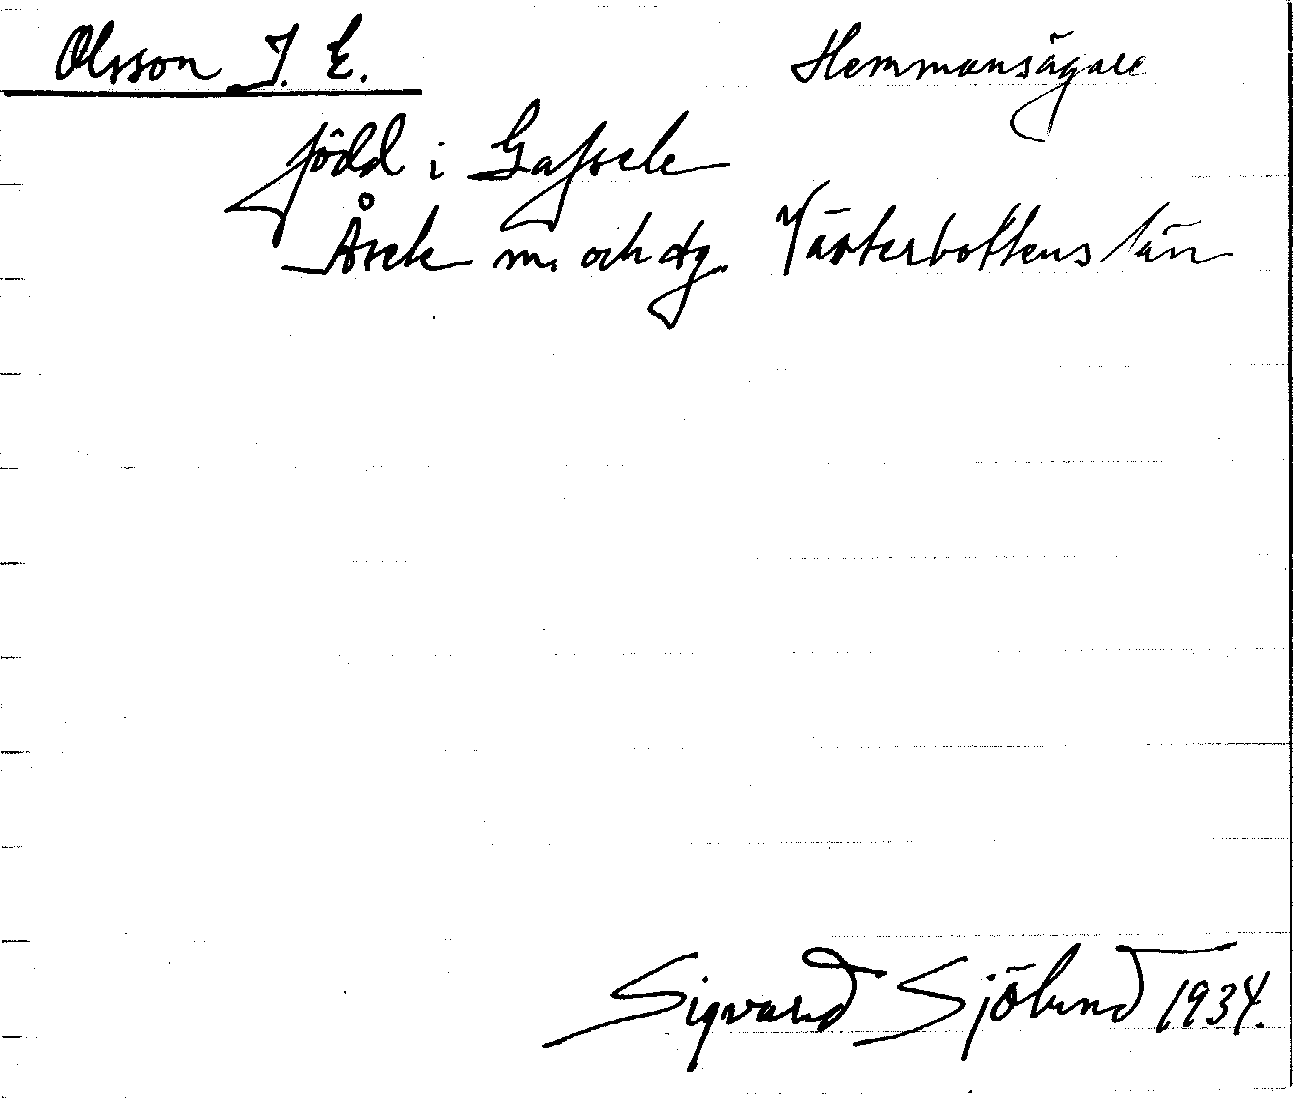 Olsson J. E. Hemmansägare
född i Gafsele
Åsele m. och dg. Västerbottens län
Sigvard Sjölund 1934.